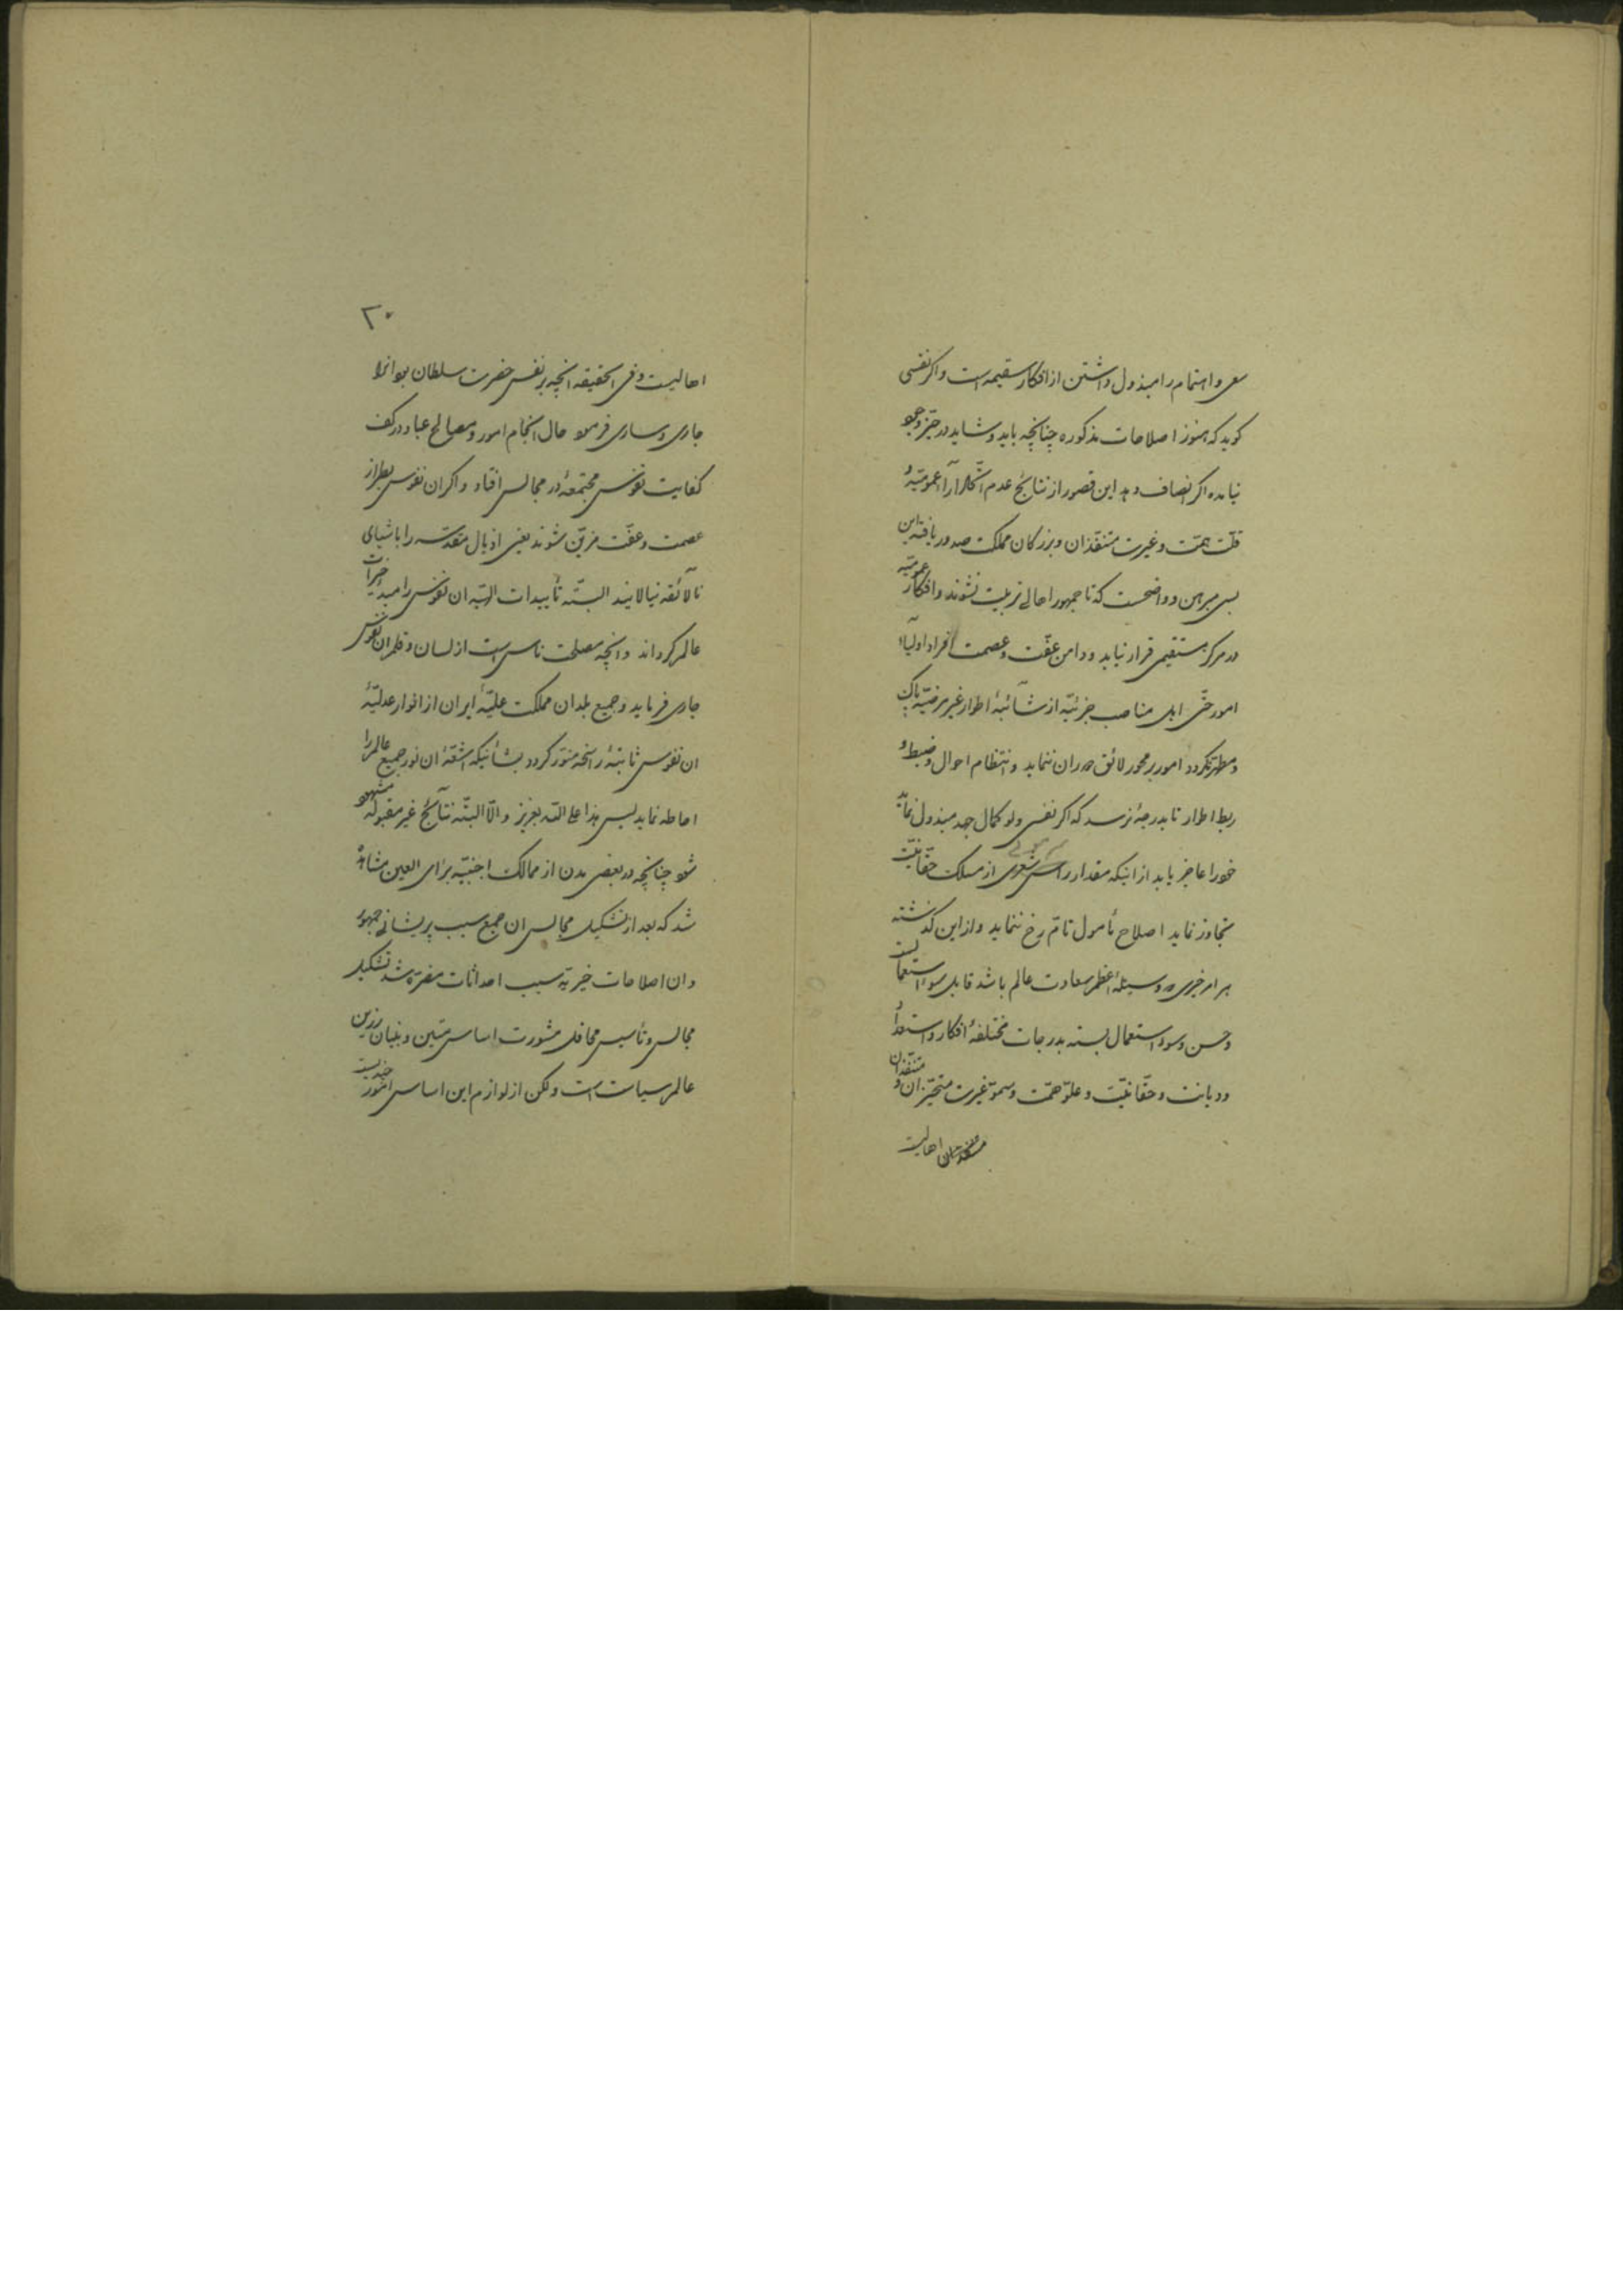 سعی و اهتمام را مبذول داشتن از افکار سقیمه است و اگر نفسی
کوید که هنوز اصلاحات مذکوره چنانچه باید و شاید در حیّز وجود
نیامده اکر انصاف دهد این قصور از نتائج عدم اتّحاد آراء عمومیّه و
قلّت همّت و غیرت متنفّذان و بزرکان مملکت صدور یافته این
بسی مبرهن و واضحست که تا جمهور اهالی تربیت نشوند و افکار عمومیّه
در مرکز مستقیمی قرار نیابد و دامن عفّت و عصمت افراد اولیآء
امور حتّی اهل مناصب جزئیّه از شآئبهٔ اطوار غیر مرضیّه پاک
و مطهّر نکردد امور بر محور لائق دوران ننماید و انتظام احوال و ضبط و
ربط اطوار تا بدرجهٔ نرسد که اکر نفسی ولو کمال جهد مبذول نماید
خود را عاجز یابد از اینکه مقدار رأس شعری از مسلک حقّانیّت
تجاوز نماید اصلاح مأمول تامّ رخ ننماید و از این کذشته
هر امر خیری که وسیلهٔ اعظم سعادت عالم باشد قابل سوء استعمالست
و حسن و سوء استعمال بسته بدرجات مختلفهٔ افکار و استعداد
و دیانت و حقّانیّت و علوّ همّت و سموّ غیرت متحیّزان و متنفّذان
اهالیست
۲۰
اهالیست و فی الحقیقه آنچه بر نفس حضرت سلطان بود انرا
جاری و ساری فرمود حال انجام امور و مصالح عباد در کف
کفایت نفوس مجتمعهٔ در مجالس افتاد و اکر ان نفوس بطراز
عصمت و عفّت مزیّن شوند یعنی اذیال مقدّسه را باشیای
نالآئقه نیالایند البتّه تأییدات الهیّه ان نفوس را مبدء خیرات
عالم کرداند و انچه مصلحت ناس است از لسان و قلم ان نفوس
جاری فرماید و جمیع بلدان مملکت علیّهٔ ایران از انوار عدلیّهٔ
ان نفوس ثابتهٔ راسخه منوّر کردد بشأنیکه اشعّهٔ ان نور جمیع عالم را
احاطه نماید لیس هذا علی اللّه بعزیز و الّا البتّه نتآئج غیر مقبوله مشهود
شود چنانچه در بعضی مدن از ممالک اجنبیّه برای العین مشاهده
شد که بعد از تشکیل مجالس ان جمع سبب پریشانی جمهور
و ان اصلاحات خیریّه سبب احداثات مضرّه شد تشکیل
مجالس و تأسیس محافل مشورت اساس متین و بنیان رزین
عالم سیاست است ولکن از لوازم این اساس امور چندیست